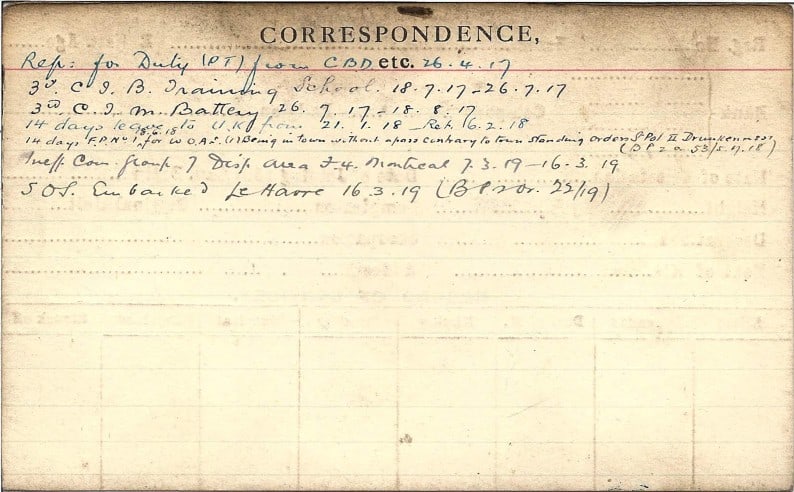 CORRESPONDENCE,
etc.
Rep: for Duty (PT) from CBD 26.4.17
3rd C.I.B. Training School. 18.7.17-26.7.17
3rd C.T.M. Battery 26.7.17-18.8.17
14 days leave to U.K from 21.1.18 - Ret. 6.2.18
14 days F.P. No 1 for W.O.A.S. (I) Being in town without a pass contrary to town Standing orders St Pol II Drunkenness
18.6.18
Ineff Com. Group 7 Disp Area Montreal 7.3.19-16.3.19
S.O.S. Embarked Le Havre 16.3.19 22/19)